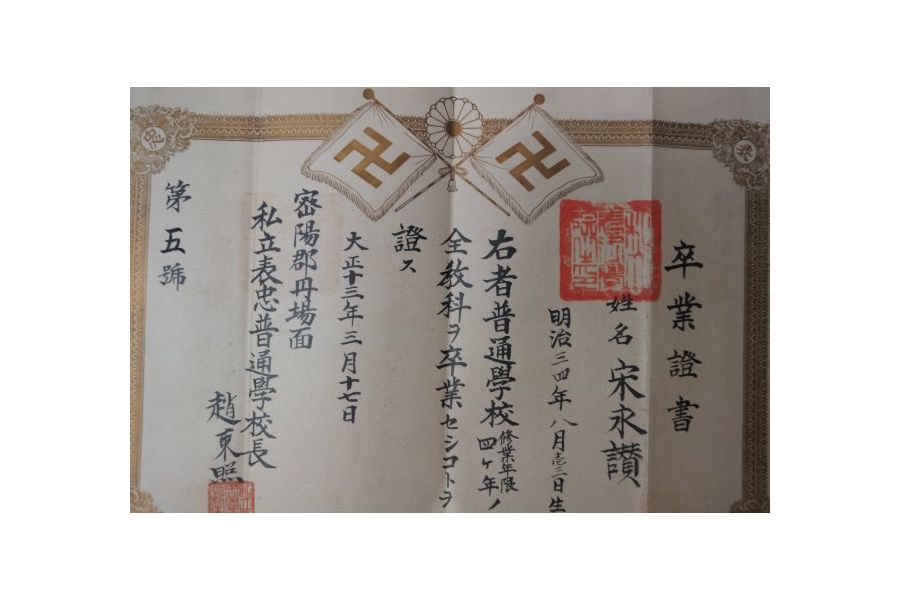 卒業證書
姓名 宋永讃
明治三四年八月壱三日生
右者普通學校修業年限四ヶ年ノ
全教科ヲ卒業セシコトヲ
證ス
大正十三年三月十七日
密陽郡丹場面
私立表忠普通學校長
趙東㷩
第五號